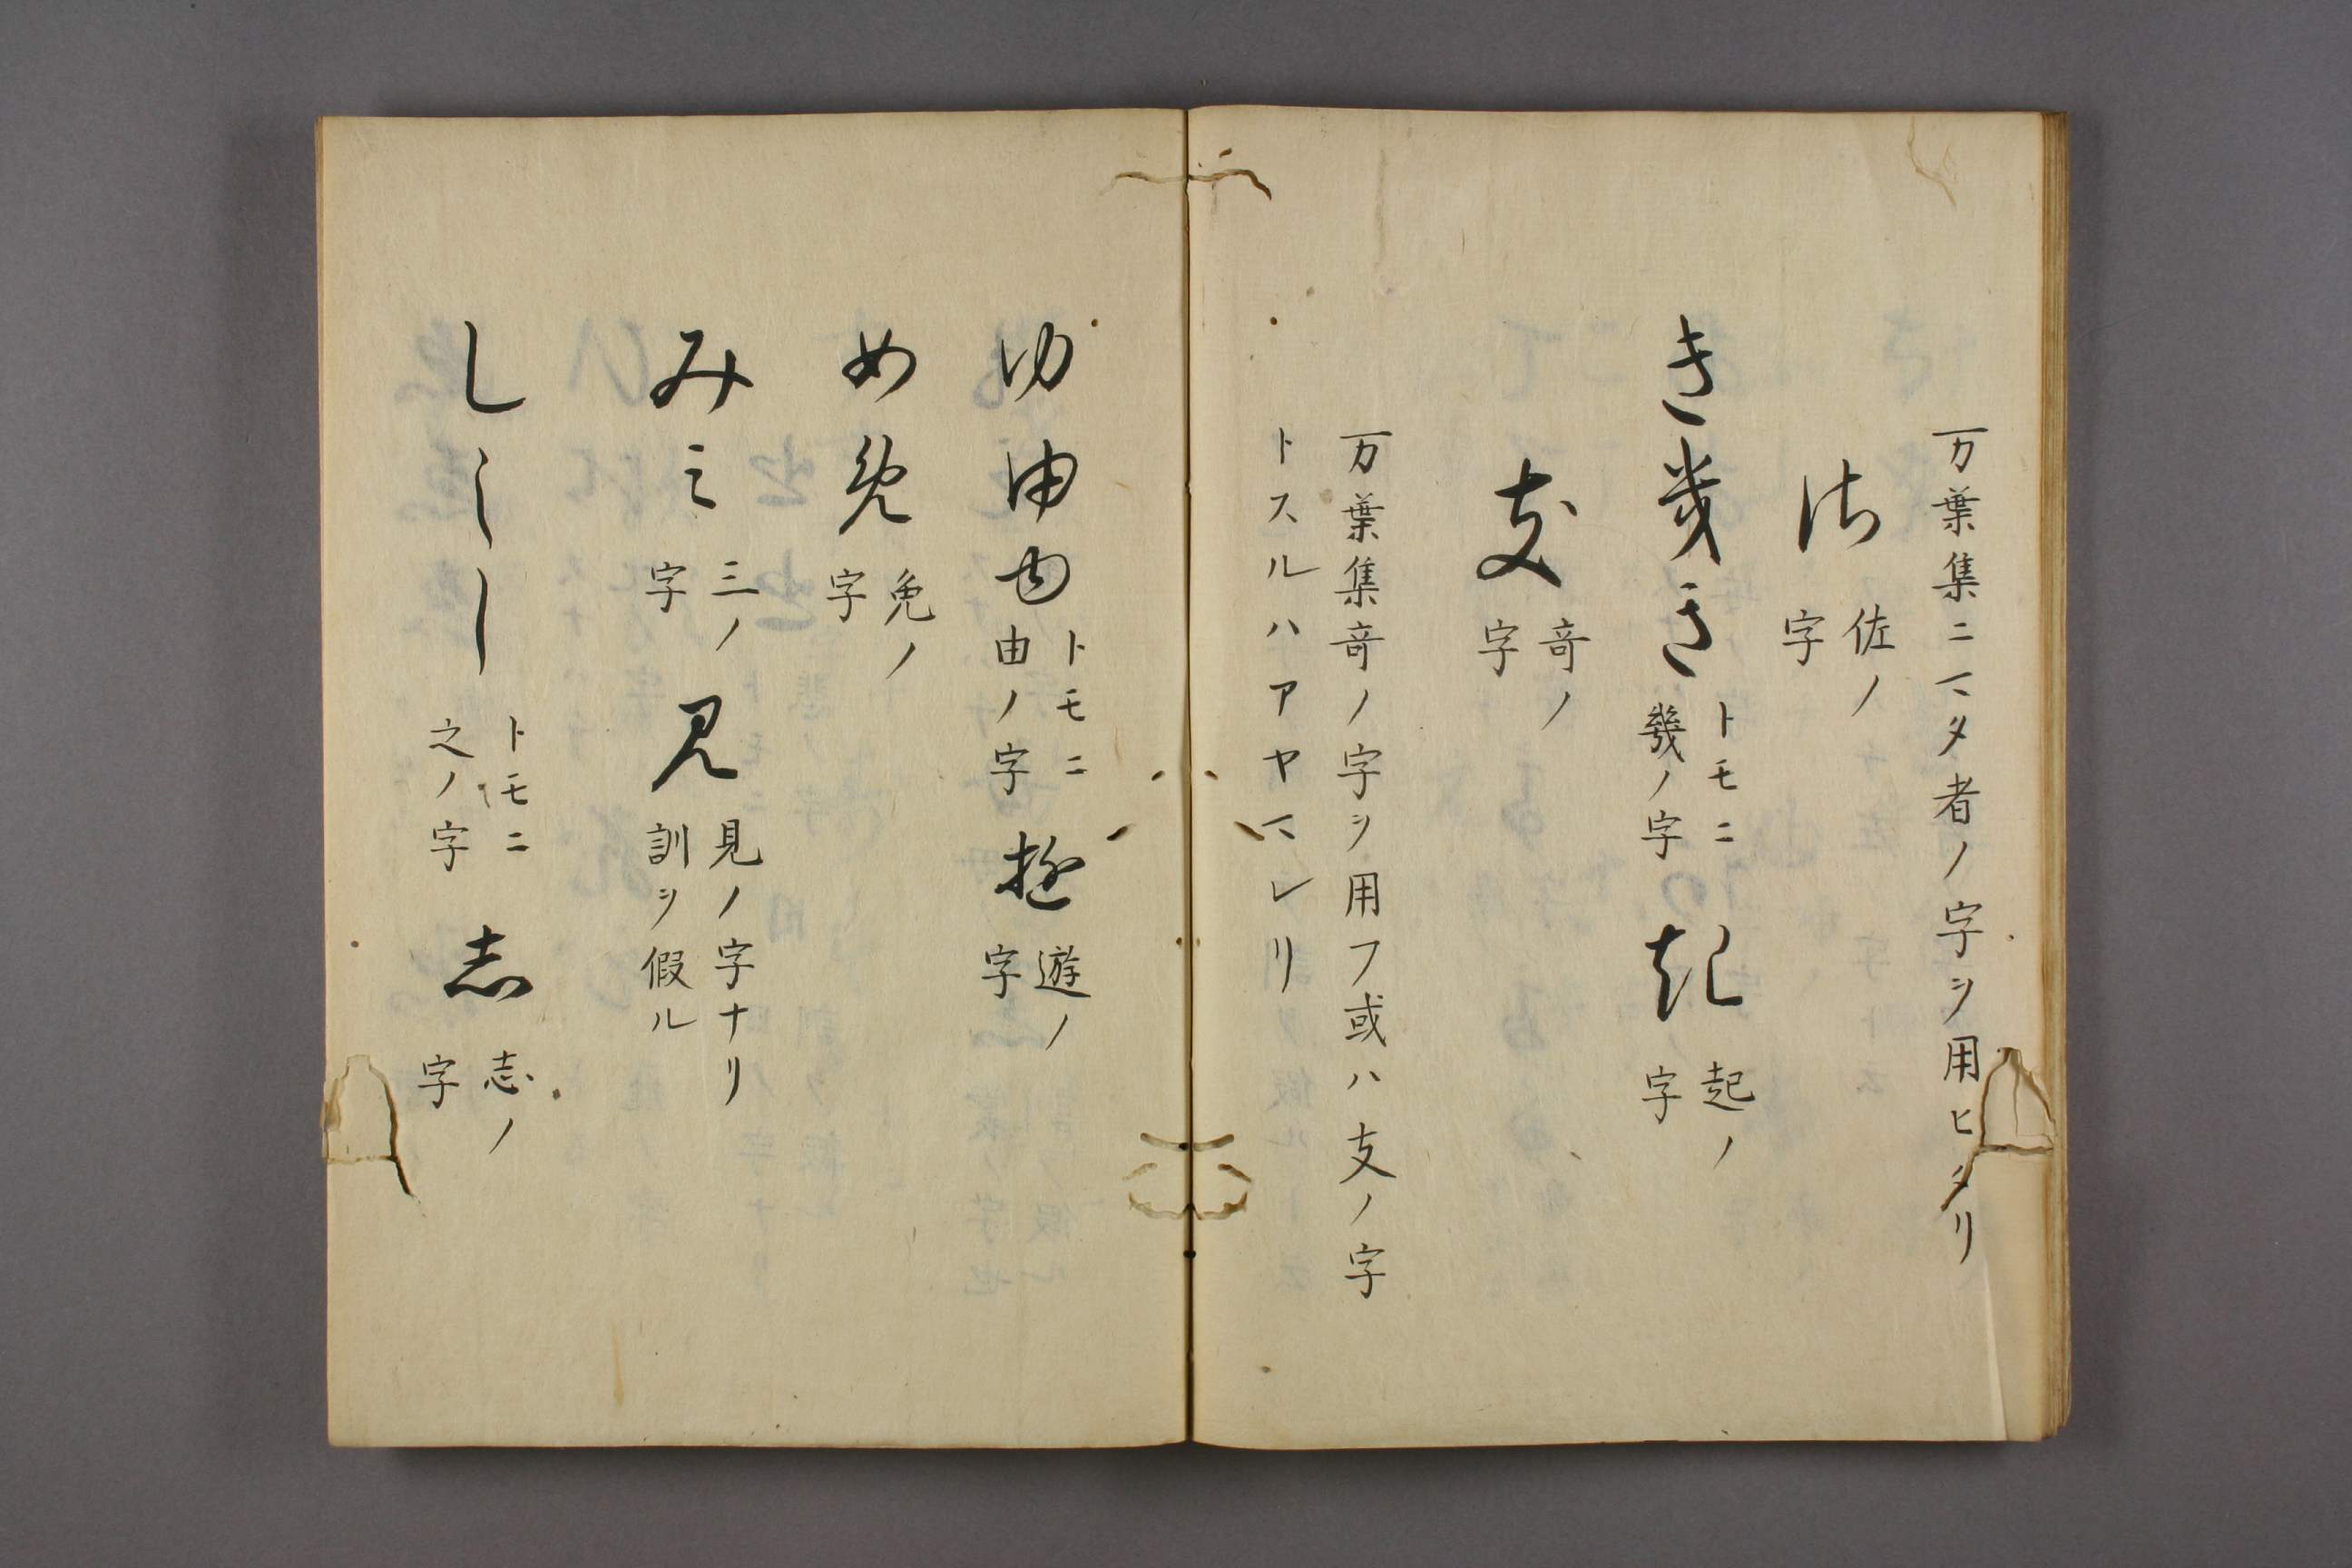 万葉集ニマタ者ノ字ヲ用ヒタリ
佐 佐ノ字
き 幾 き トモニ幾ノ字 起 起ノ字
支 竒ノ字
万葉集竒ノ字ヲ用フ或ハ支ノ字
トスルハアヤマレリ
ゆ 由 由 トモニ由ノ字 遊 遊ノ字
め 免 免ノ字
み ミ 三ノ字 見 見ノ字ナリ訓ヲ假ル
し し し トモニ之ノ字 志 志ノ字